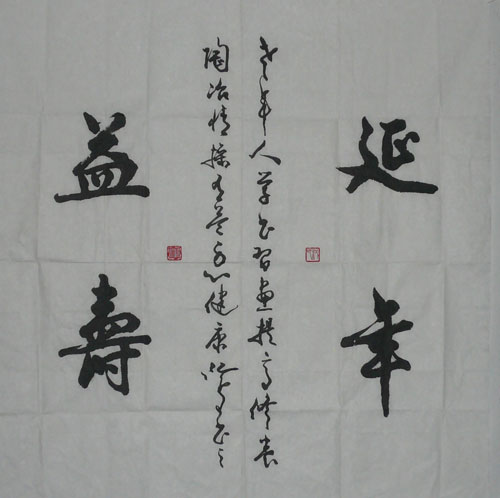 延年
老年人学书习画提高修养
陶冶情操有益身心健康
益壽